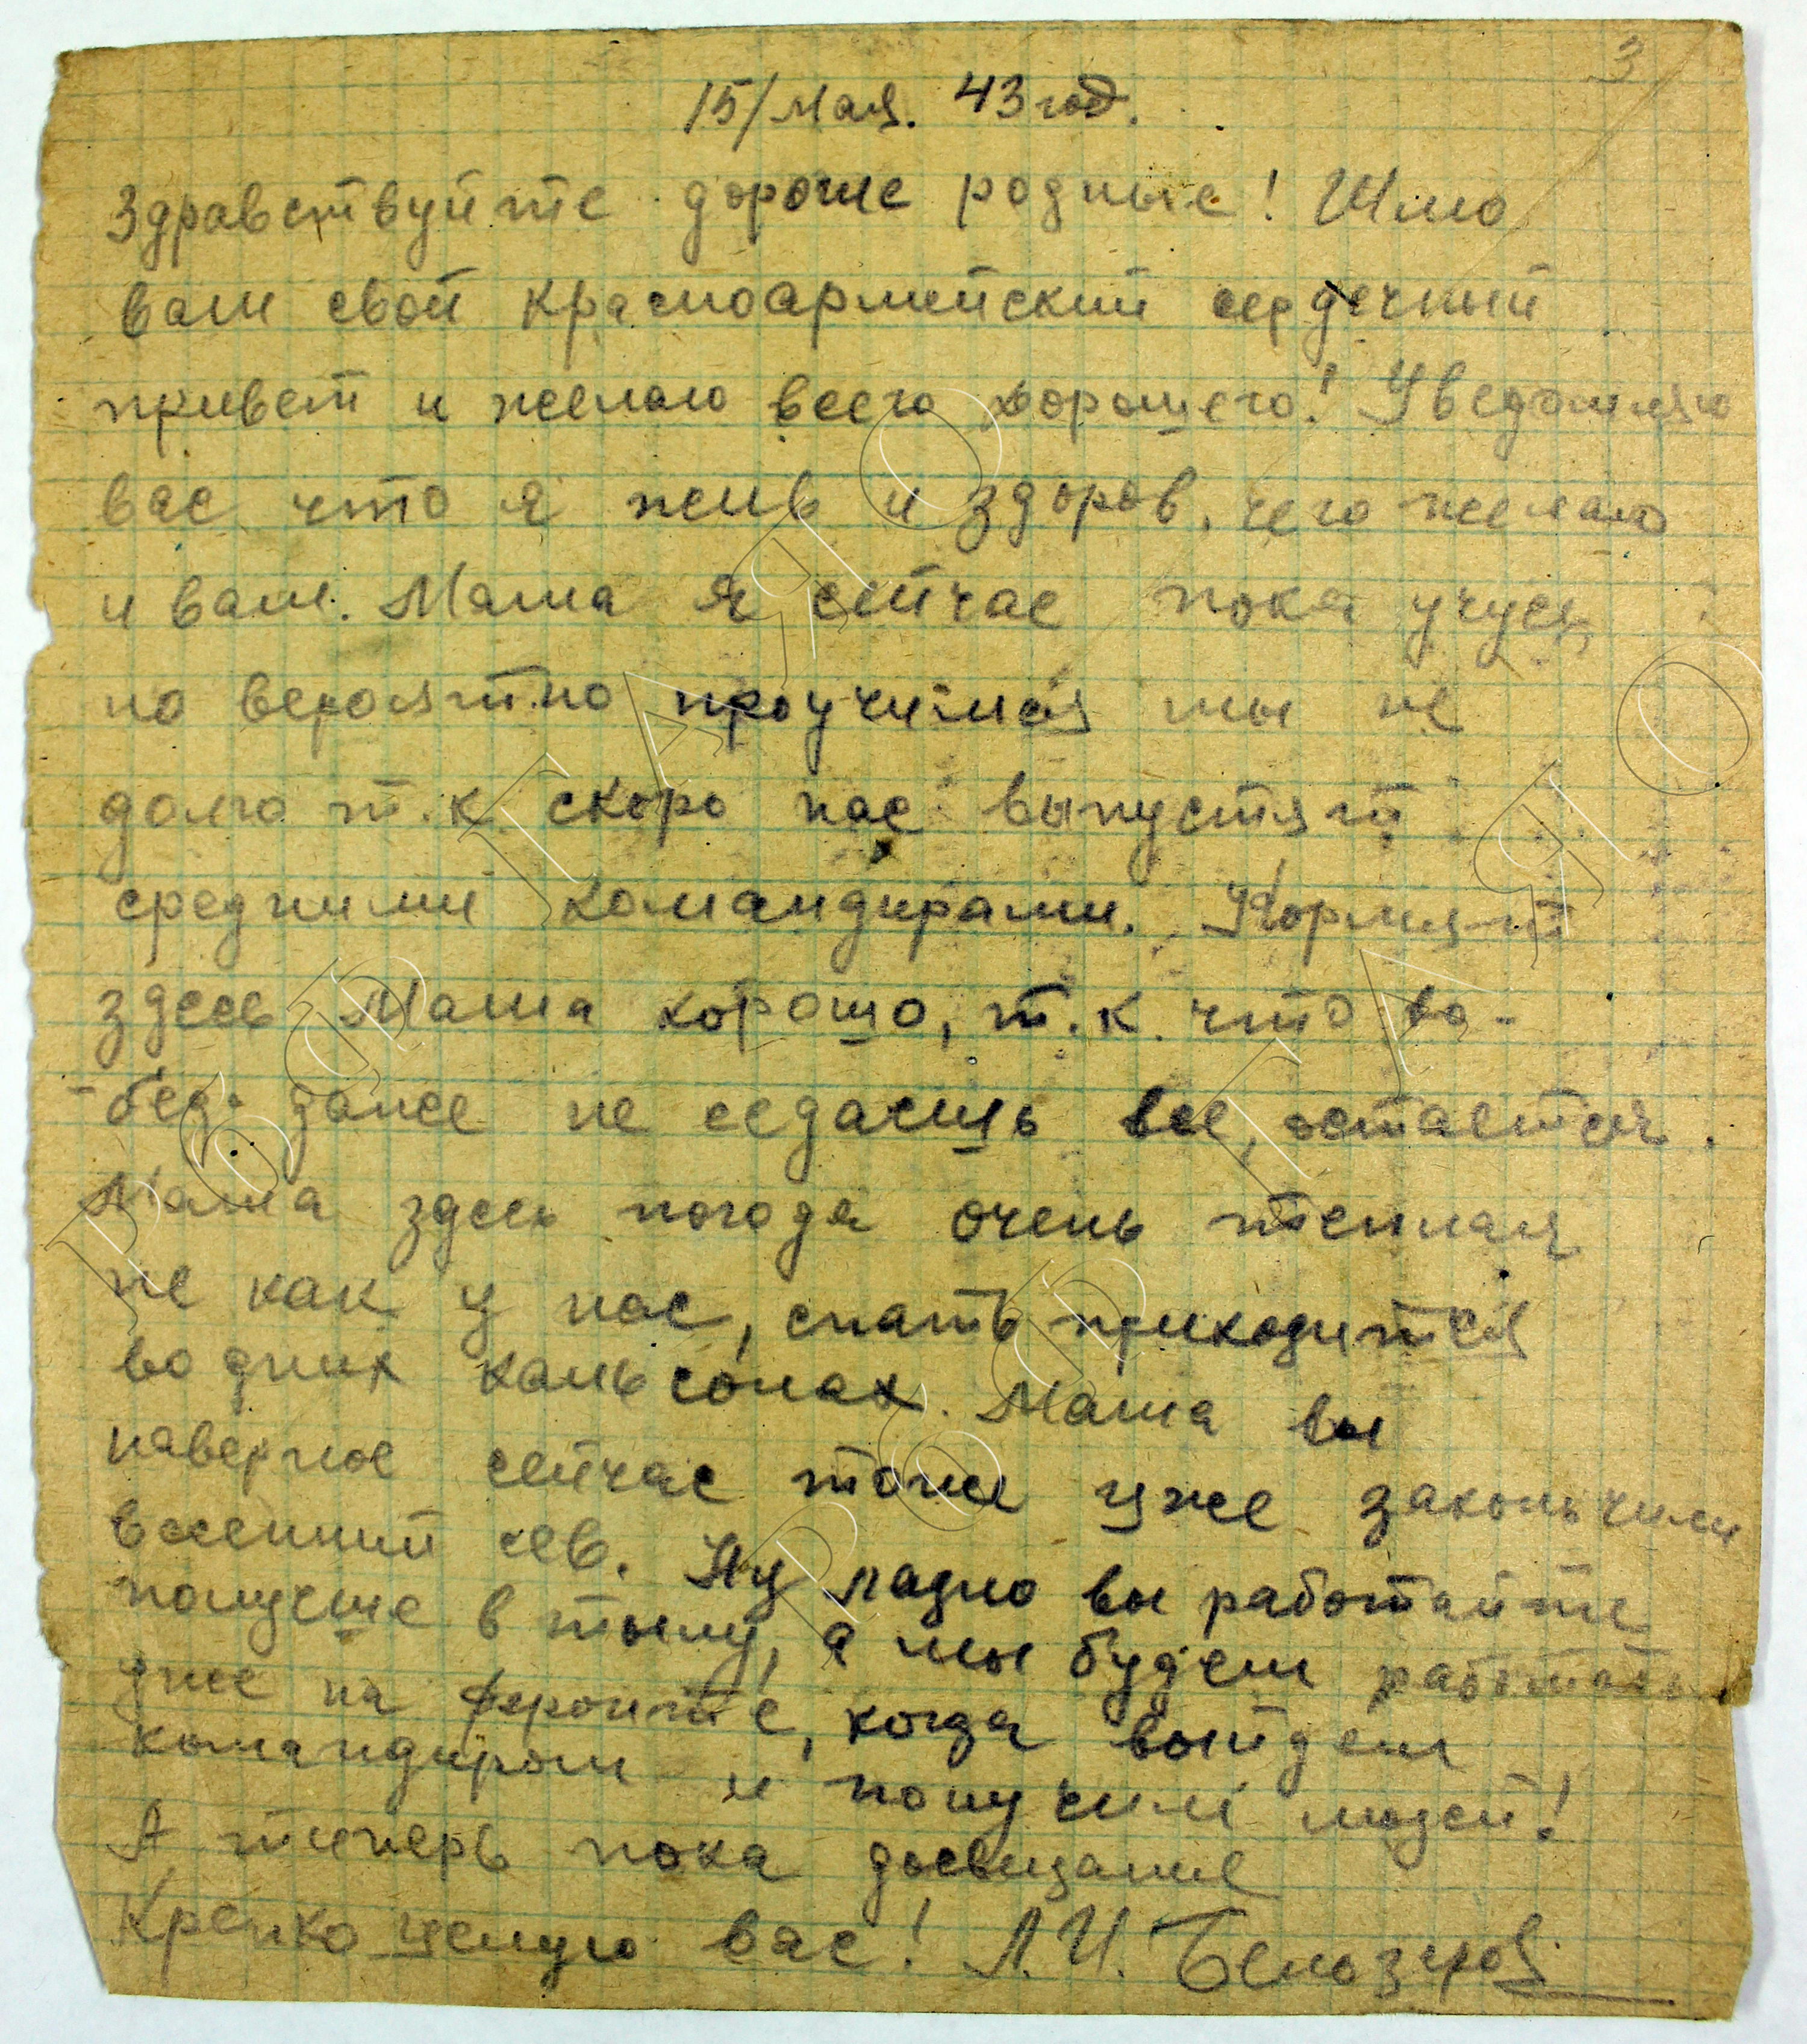 3
15/мая. 43 год.
Здравствуйте дорогие родные! Шлю
вам свой красноармейский сердечный
привет и желаю всего хорошего! Уведомляю
вас что я жив и здоров, чего желаю
и вам. Мама я сейчас пока учусь,
но вероятно проучимся мы не
долго т.к. скоро нас выпустят
средними командирами. Кормят
здесь Мама хорошо, т.к. что во-
-бед даже не седаешь все, остается.
Мама здесь погода очень теплая
не как у нас, спать приходится
водних кальсонах. Мама вы
наверное сейчас тоже уже законьчили
весенний сев. Ну ладно вы работайте
получше в тылу, а мы будем работать
уже на фронте, когда выйдем
командиром и получим людей!
А типерь пока досвидание
Крепко целую вас! А.И. Белозеров
РФ ГАЯО
РФ ГАЯО